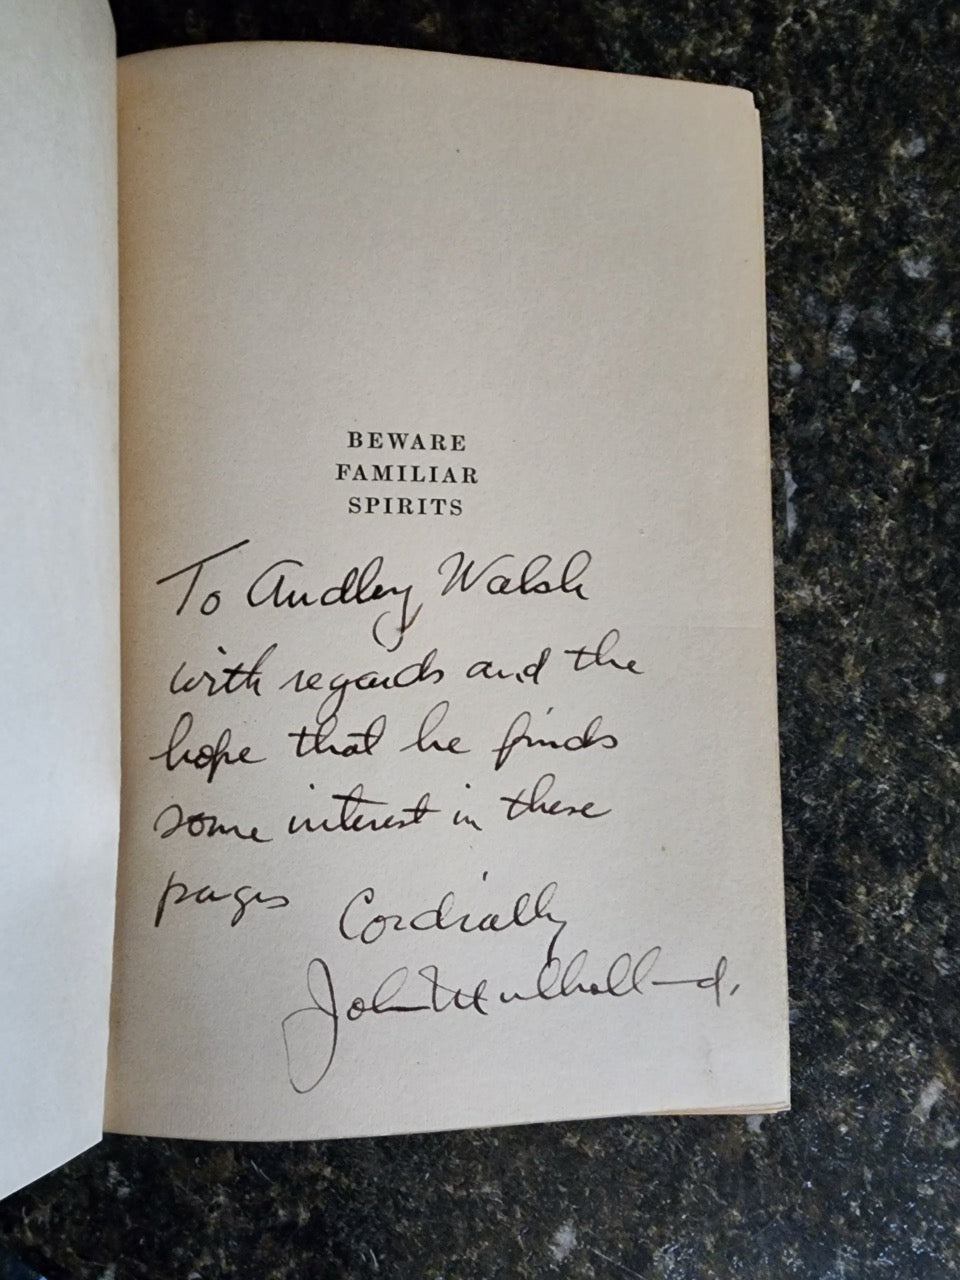 BEWARE
FAMILIAR
SPIRITS
To Audley Walsh
with regards and the
hope that he finds
some interest in these
pages
Cordially
John Mulholland.